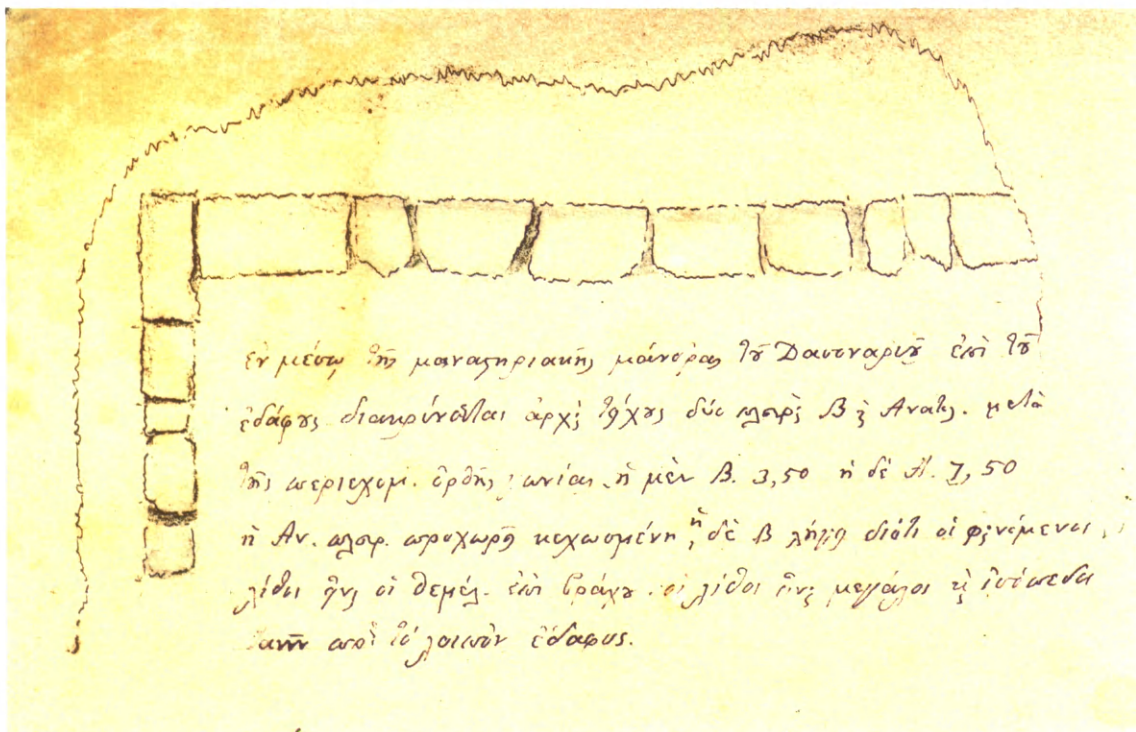 ἐν μέσῳ τῆς μοναστηριακῆς μάνδρας τοῦ Δαουναρίου ἐπὶ τοῦ
ἐδάφους διακρίνεται ἀρχ: τείχους δύο πλευρὲς Β ϗ Ἀνατ. μετὰ
τῆς περιεχομ. ὀρθῆς γωνίας. ἡ μὲν Β. 3,50 ἡ δὲ Ἀ. 7,50
ἡ Ἀν. πλευρ. προχωρεῖ κεχωσμένη, ἡ δὲ Β λήγει διότι οἱ φαινόμενοι
λίθοι εἶνε οἱ θεμέλ. ἐπὶ βράχου. οἱ λίθοι εἶνε μεγάλοι ϗ ἰσόπεδοι
πρὸς τὸ λοιπὸν ἔδαφος.